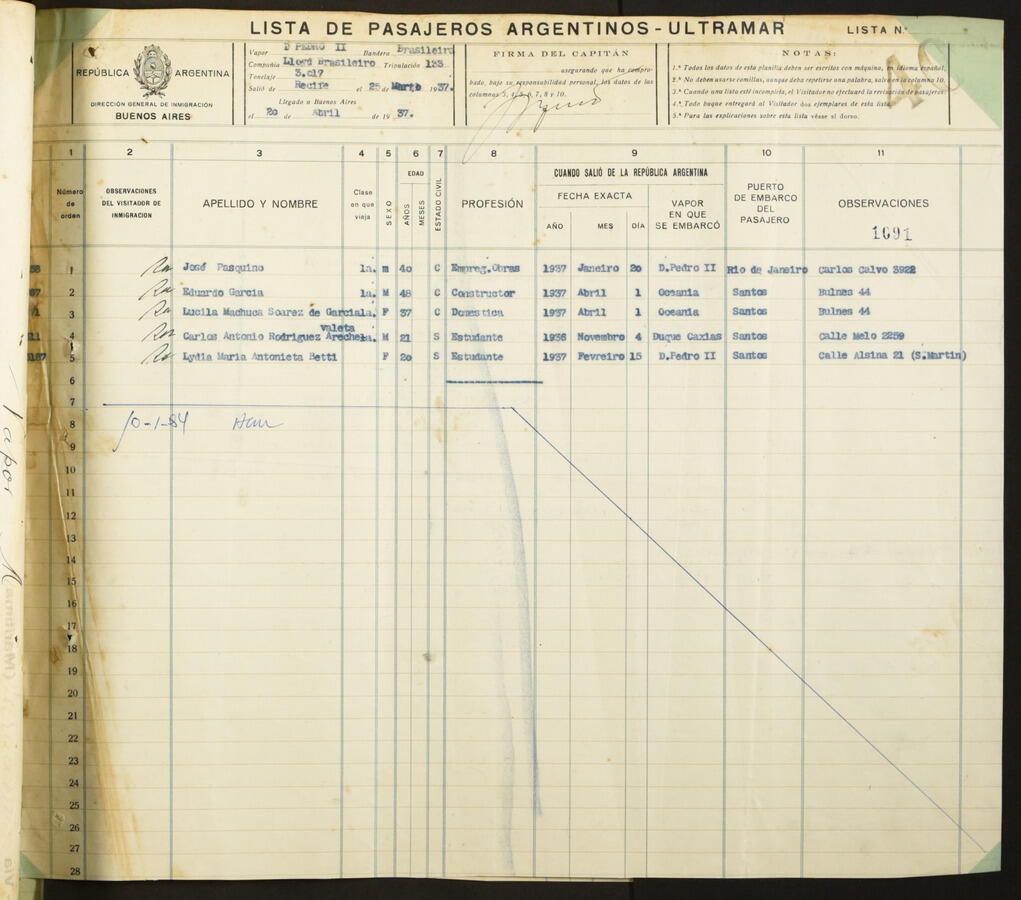 LISTA DE PASAJEROS ARGENTINOS - ULTRAMAR
LISTA N.º
REPÚBLICA ARGENTINA
DIRECCIÓN GENERAL DE INMIGRACIÓN
BUENOS AIRES
Vapor D PEDRO II Bandera Brasileiro
Compañía Lloyd Brasileiro Tripulación 123
Tonelaje 3.017
Salió de Recife el 25 de Março 1937.
Llegado a Buenos Aires
el 20 de Abril de 1937.
FIRMA DEL CAPITÁN
asegurando que ha compro-
bado, bajo su responsabilidad personal, los datos de las
columnas 3, 4, 5, 6, 7, 8 y 10.
NOTAS:
1.ª Todos los datos de esta planilla deben ser escritos con máquina, en idioma español.
2.ª No deben usarse comillas, aunque deba repetirse una palabra, salvo en la columna 10.
3.ª Cuando una lista esté incompleta, el Visitador no efectuará la revisación de pasajeros.
4.ª Todo buque entregará al Visitador dos ejemplares de esta lista.
5.ª Para las explicaciones sobre esta lista véase al dorso.
1 2 3 4 5 6 7 8 9 10 11
Número de orden
OBSERVACIONES DEL VISITADOR DE INMIGRACIÓN
APELLIDO Y NOMBRE
Clase en que viaja
SEXO
EDAD
AÑOS
MESES
ESTADO CIVIL
PROFESIÓN
CUANDO SALIÓ DE LA REPÚBLICA ARGENTINA
FECHA EXACTA
AÑO MES DÍA
VAPOR EN QUE SE EMBARCÓ
PUERTO DE EMBARCO DEL PASAJERO
OBSERVACIONES
1091
1 José Pasquino 1a. m 40 C Empreg.Obras 1937 Janeiro 20 D.Pedro II Rio de Janeiro Carlos Calvo 3922
2 Eduardo Garcia 1a. M 48 C Constructor 1937 Abril 1 Oceania Santos Bulnes 44
3 Lucila Machuca Soarez de Garcia1a. F 37 C Domestica 1937 Abril 1 Oceania Santos Bulnes 44
valeta
4 Carlos Antonio Rodriguez Arechela. M 21 S Estudante 1936 Novembro 4 Duque Caxias Santos Calle Melo 2259
5 Lydia Maria Antonieta Betti F 20 S Estudante 1937 Fevreiro 15 D.Pedro II Santos Calle Alsina 21 (S.Martin)
6
7
8 10-1-84
9
10
11
12
13
14
15
16
17
18
19
20
21
22
23
24
25
26
27
28